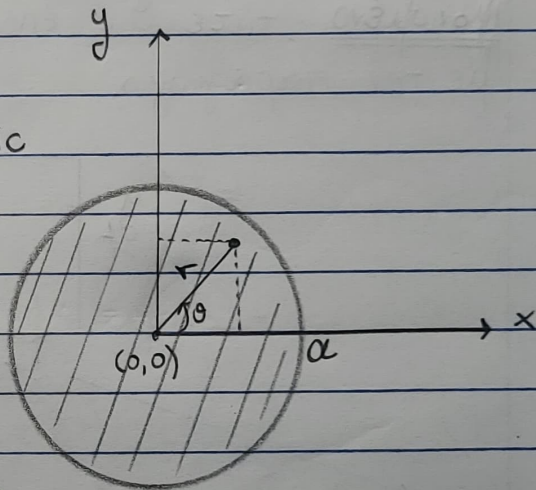 y
c
r
θ
x
(0,0)
a